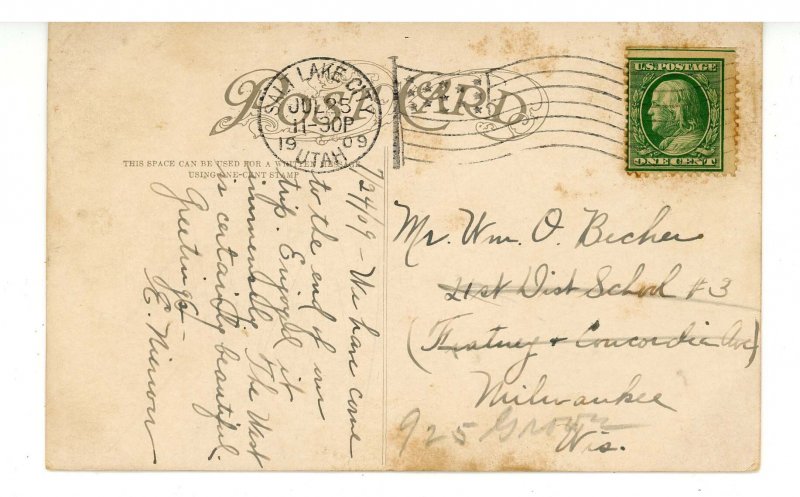 POST CARD
SALT LAKE CITY
JUL 25
11-30P
1909
UTAH
U.S. POSTAGE
ONE CENT
THIS SPACE CAN BE USED FOR A WRITTEN MESSAGE
USING ONE-CENT STAMP
7/24/09 – We have come
to the end of our
trip. Enjoyed it
immensely. The West
is certainly beautiful.
Greetings
E.
Mr. Wm. O. Becher
21st Dist School #3
( + Concordia Ave)
Milwaukee
Wis.
925